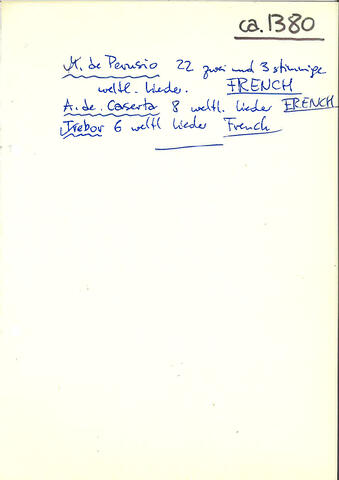 ca. 1380
M. de Perusio 22 zwei und 3 stimmige
weltl. Lieder. FRENCH
A. de. Caserta 8 weltl. lieder FRENCH
Trebor 6 weltl lieder French